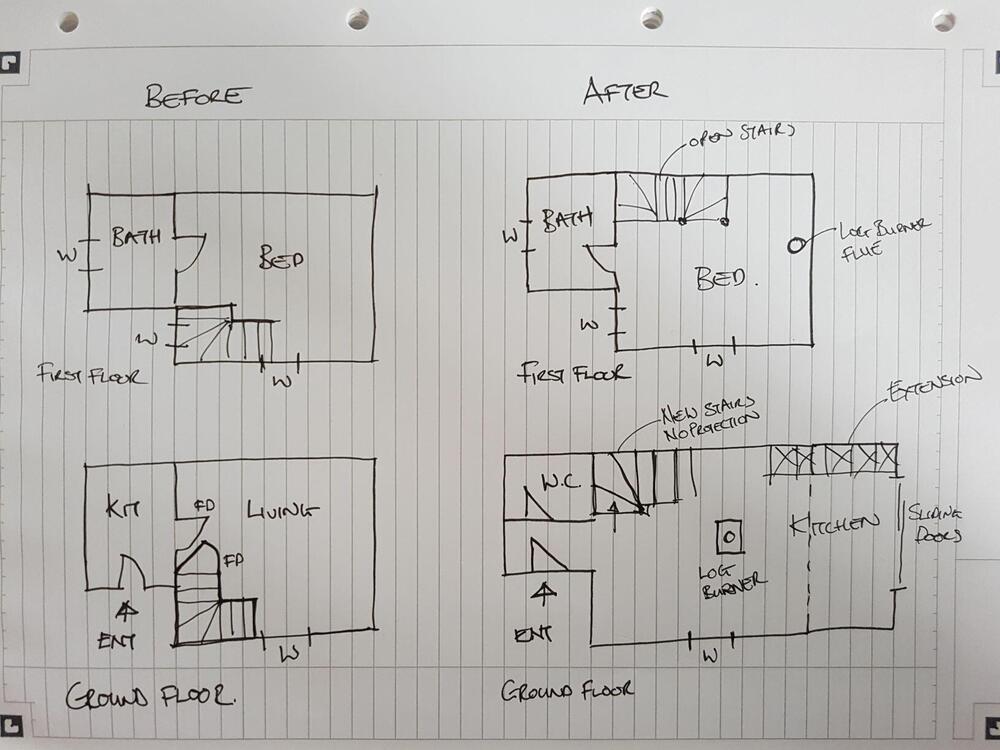 BEFORE
BATH
W
BED
W
W
FIRST FLOOR
KIT
FD
LIVING
FD
ENT
W
GROUND FLOOR.
AFTER
OPEN STAIRS
BATH
W
LOG BURNER
FLUE
BED.
W
W
FIRST FLOOR
EXTENSION
NEW STAIRS
NO PROJECTION
W.C.
KITCHEN
SLIDING
DOORS
LOG
BURNER
ENT
W
GROUND FLOOR